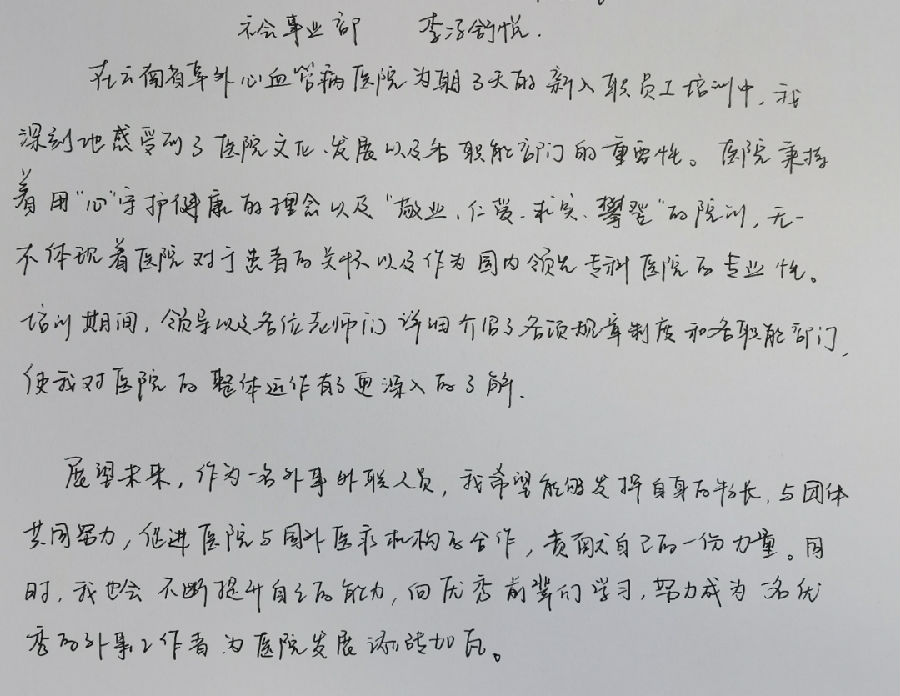 社会事业部 李泽舒悦.
在云南省阜外心血管病医院为期3天的新入职员工培训中,我
深刻地感受到了医院文化、发展以及各职能部门的重要性。医院秉持
着用"心"守护健康的理念以及"敬业、仁爱、求实、攀登"的院训,无一
不体现着医院对于患者的关怀以及作为国内领先专科医院的专业性。
培训期间,领导以及各位老师们详细介绍了各项规章制度和各职能部门,
使我对医院的整体运作有了更深入的了解.
展望未来,作为一名外事外联人员,我希望能够发挥自身的特长,与团体
共同努力,促进医院与国外医疗机构的合作,贡献自己的一份力量。同
时,我也会不断提升自己的能力,向优秀前辈们学习,努力成为一名优
秀的外事工作者为医院发展添砖加瓦。